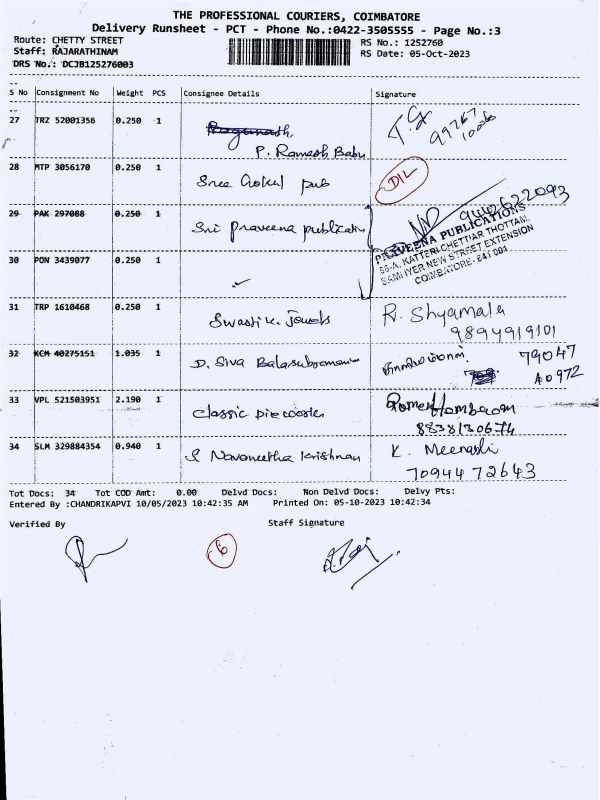 THE PROFESSIONAL COURIERS, COIMBATORE
Delivery Runsheet - PCT - Phone No.:0422-3505555 - Page No.:3
Route: CHETTY STREET
RS No.: 1252760
Staff: RAJARATHINAM
RS Date: 05-Oct-2023
DRS No.: DCJB125276003
S No Consignment No Weight PCS Consignee Details Signature
27 TRZ 52001356 0.250 1
P. Ramesh Babu
28 MTP 3056170 0.250 1 Sree Gokul pub DIL
29 PAK 297088 0.250 1 Sri praveena publication
PRAVEENA PUBLICATIONS
56-A, KATTERI CHETTIAR THOTTAM,
SAMI IYER NEW STREET EXTENSION
COIMBATORE - 641 001
30 PON 3439077 0.250 1 ✓
31 TRP 1610468 0.250 1 Swastik Jewels R. Shyamala
9894919101
32 KCM 40275151 1.035 1 D. Siva Balasubramani 79047
40972
33 VPL 521503951 2.190 1 Classic
8838130674
34 SLM 329884354 0.940 1 S Navaneetha krishnan K. Meenashi
70944 72643
Tot Docs: 34 Tot COD Amt: 0.00 Delvd Docs: Non Delvd Docs: Delvy Pts:
Entered By :CHANDRIKAPVI 10/05/2023 10:42:35 AM Printed On: 05-10-2023 10:42:34
Verified By Staff Signature
6